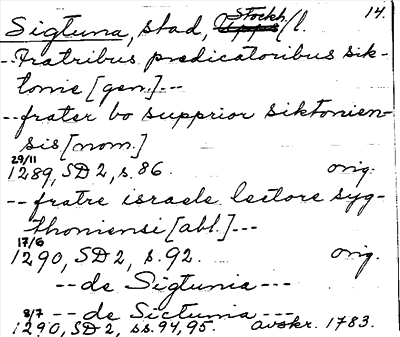 14.
Sigtuna, stad, Stockh./l.
--Fratribus predicatoribus sik-
tonie [gen.]---
--frater bo supprior siktonien-
sis [nom.]
29/11
1289, SD 2, s. 86. orig.
-- fratre israele lectore syg-
thoniensi [abl.]---
17/6
1290, SD 2, s. 92. orig.
--de Sigtunia---
8/7 --de Sictunia---
1290, SD 2, ss. 94, 95. avskr. 1783.